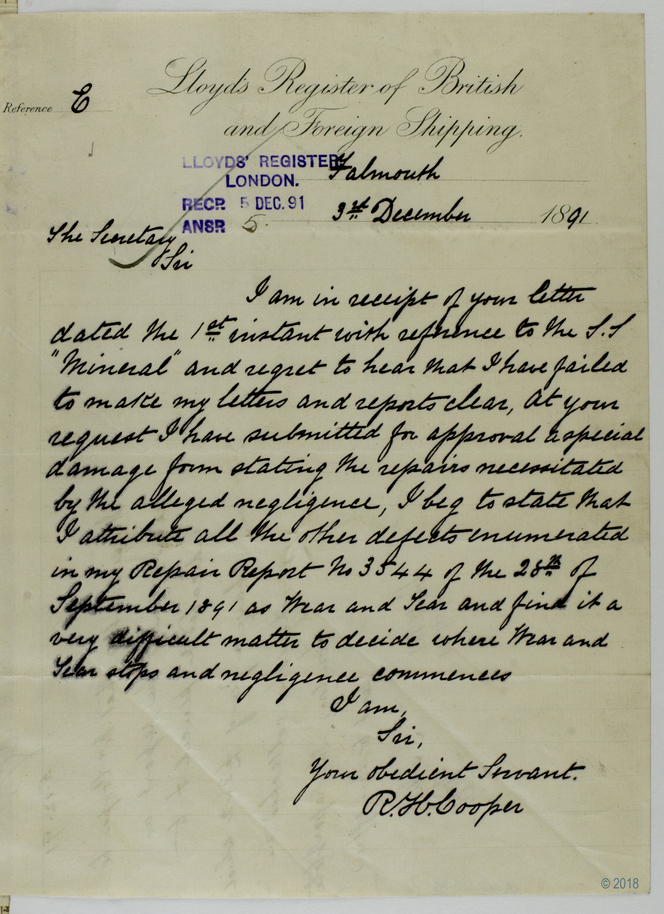 Lloyd's Register of British
Reference E
and Foreign Shipping.
LLOYDS' REGISTER
LONDON.
Falmouth
RECP. 5 DEC. 91
3rd December 1891
ANSR 5.
The Secretary
Sir
I am in receipt of your letter
dated the 1st instant with reference to the S.S
"Mineral" and regret to hear that I have failed
to make my letters and reports clear, At your
request I have submitted for approval a special
damage form stating the repairs necessitated
by the alleged negligence, I beg to state that
I attribute all the other defects enumerated
in my Repair Report No 3544 of the 28th of
September 1891 as Wear and Tear and find it a
very difficult matter to decide where Wear and
Tear stops and negligence commences
I am,
Sir,
Your obedient Servant.
R.H.Cooper
© 2018